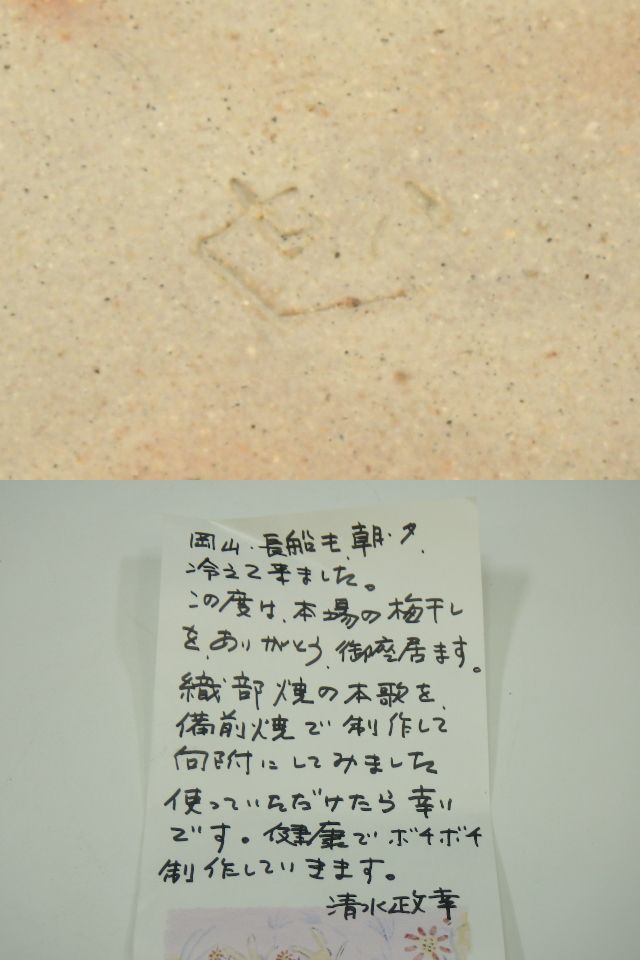 岡山、長船も、朝、夕、
冷えて来ました。
この度は、本場の梅干し
を、ありがとう、御座居ます。
織部焼の本歌を、
備前焼で制作して
向附にしてみました
使っていただけたら幸い
です。健康でボチボチ
制作していきます。
清水政幸